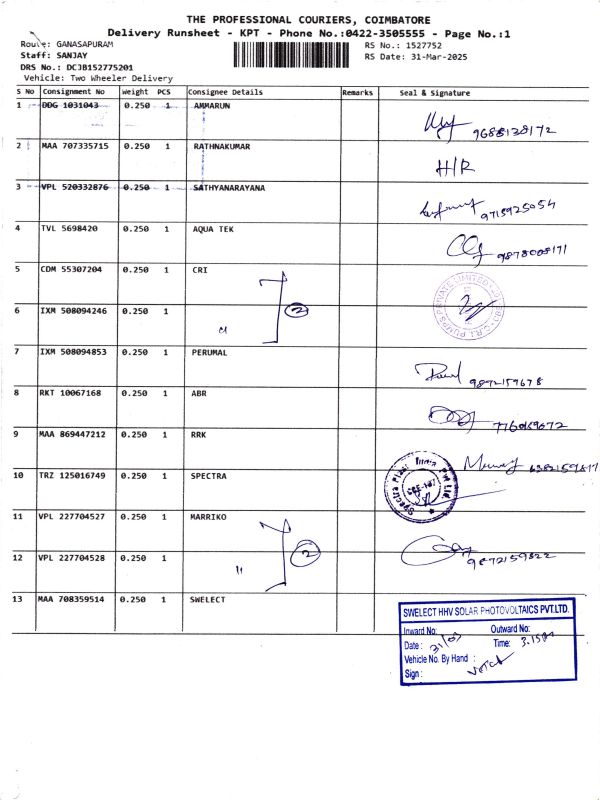 THE PROFESSIONAL COURIERS, COIMBATORE
Delivery Runsheet - KPT - Phone No.:0422-3505555 - Page No.:1
Route: GANASAPURAM RS No.: 1527752
Staff: SANJAY RS Date: 31-Mar-2025
DRS No.: DCJB152775201
Vehicle: Two Wheeler Delivery
S No Consignment No Weight PCS Consignee Details Remarks Seal & Signature
1 DDG 1031043 0.250 1 AMMARUN
9688138172
2 MAA 707335715 0.250 1 RATHNAKUMAR
H/R
3 VPL 520332876 0.250 1 SATHYANARAYANA
9715925054
4 TVL 5698420 0.250 1 AQUA TEK
9878008171
5 CDM 55307204 0.250 1 CRI
2
6 IXM 508094246 0.250 1
7 IXM 508094853 0.250 1 PERUMAL
9872159678
8 RKT 10067168 0.250 1 ABR
9 MAA 869447212 0.250 1 RRK
10 TRZ 125016749 0.250 1 SPECTRA
Spectra Plast India Pvt Ltd
11 VPL 227704527 0.250 1 MARRIKO
2
12 VPL 227704528 0.250 1 11
9872159822
13 MAA 708359514 0.250 1 SWELECT
SWELECT HHV SOLAR PHOTOVOLTAICS PVT.LTD.
Inward No: Outward No:
Date : 31/03 Time:
Vehicle No. By Hand :
Sign :